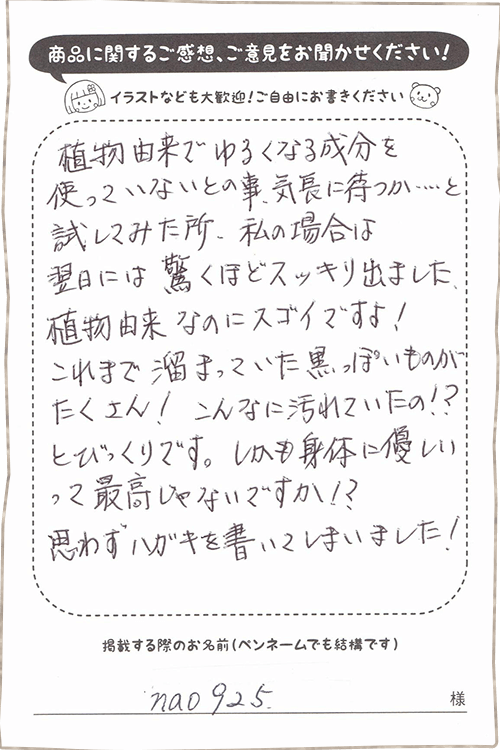 商品に関するご感想、ご意見をお聞かせください!
イラストなども大歓迎!ご自由にお書きください
植物由来でゆるくなる成分を
使っていないとの事、気長に待つか……と
試してみた所、私の場合は
翌日には驚くほどスッキリ出ました、
植物由来なのにスゴイですよ!
これまで溜まっていた黒っぽいものが
たくさん! こんなに汚れていたの!?
とびっくりです。しかも身体に優しい
って最高じゃないですか!?
思わずハガキを書いてしまいました!
掲載する際のお名前(ペンネームでも結構です)
nao925. 様